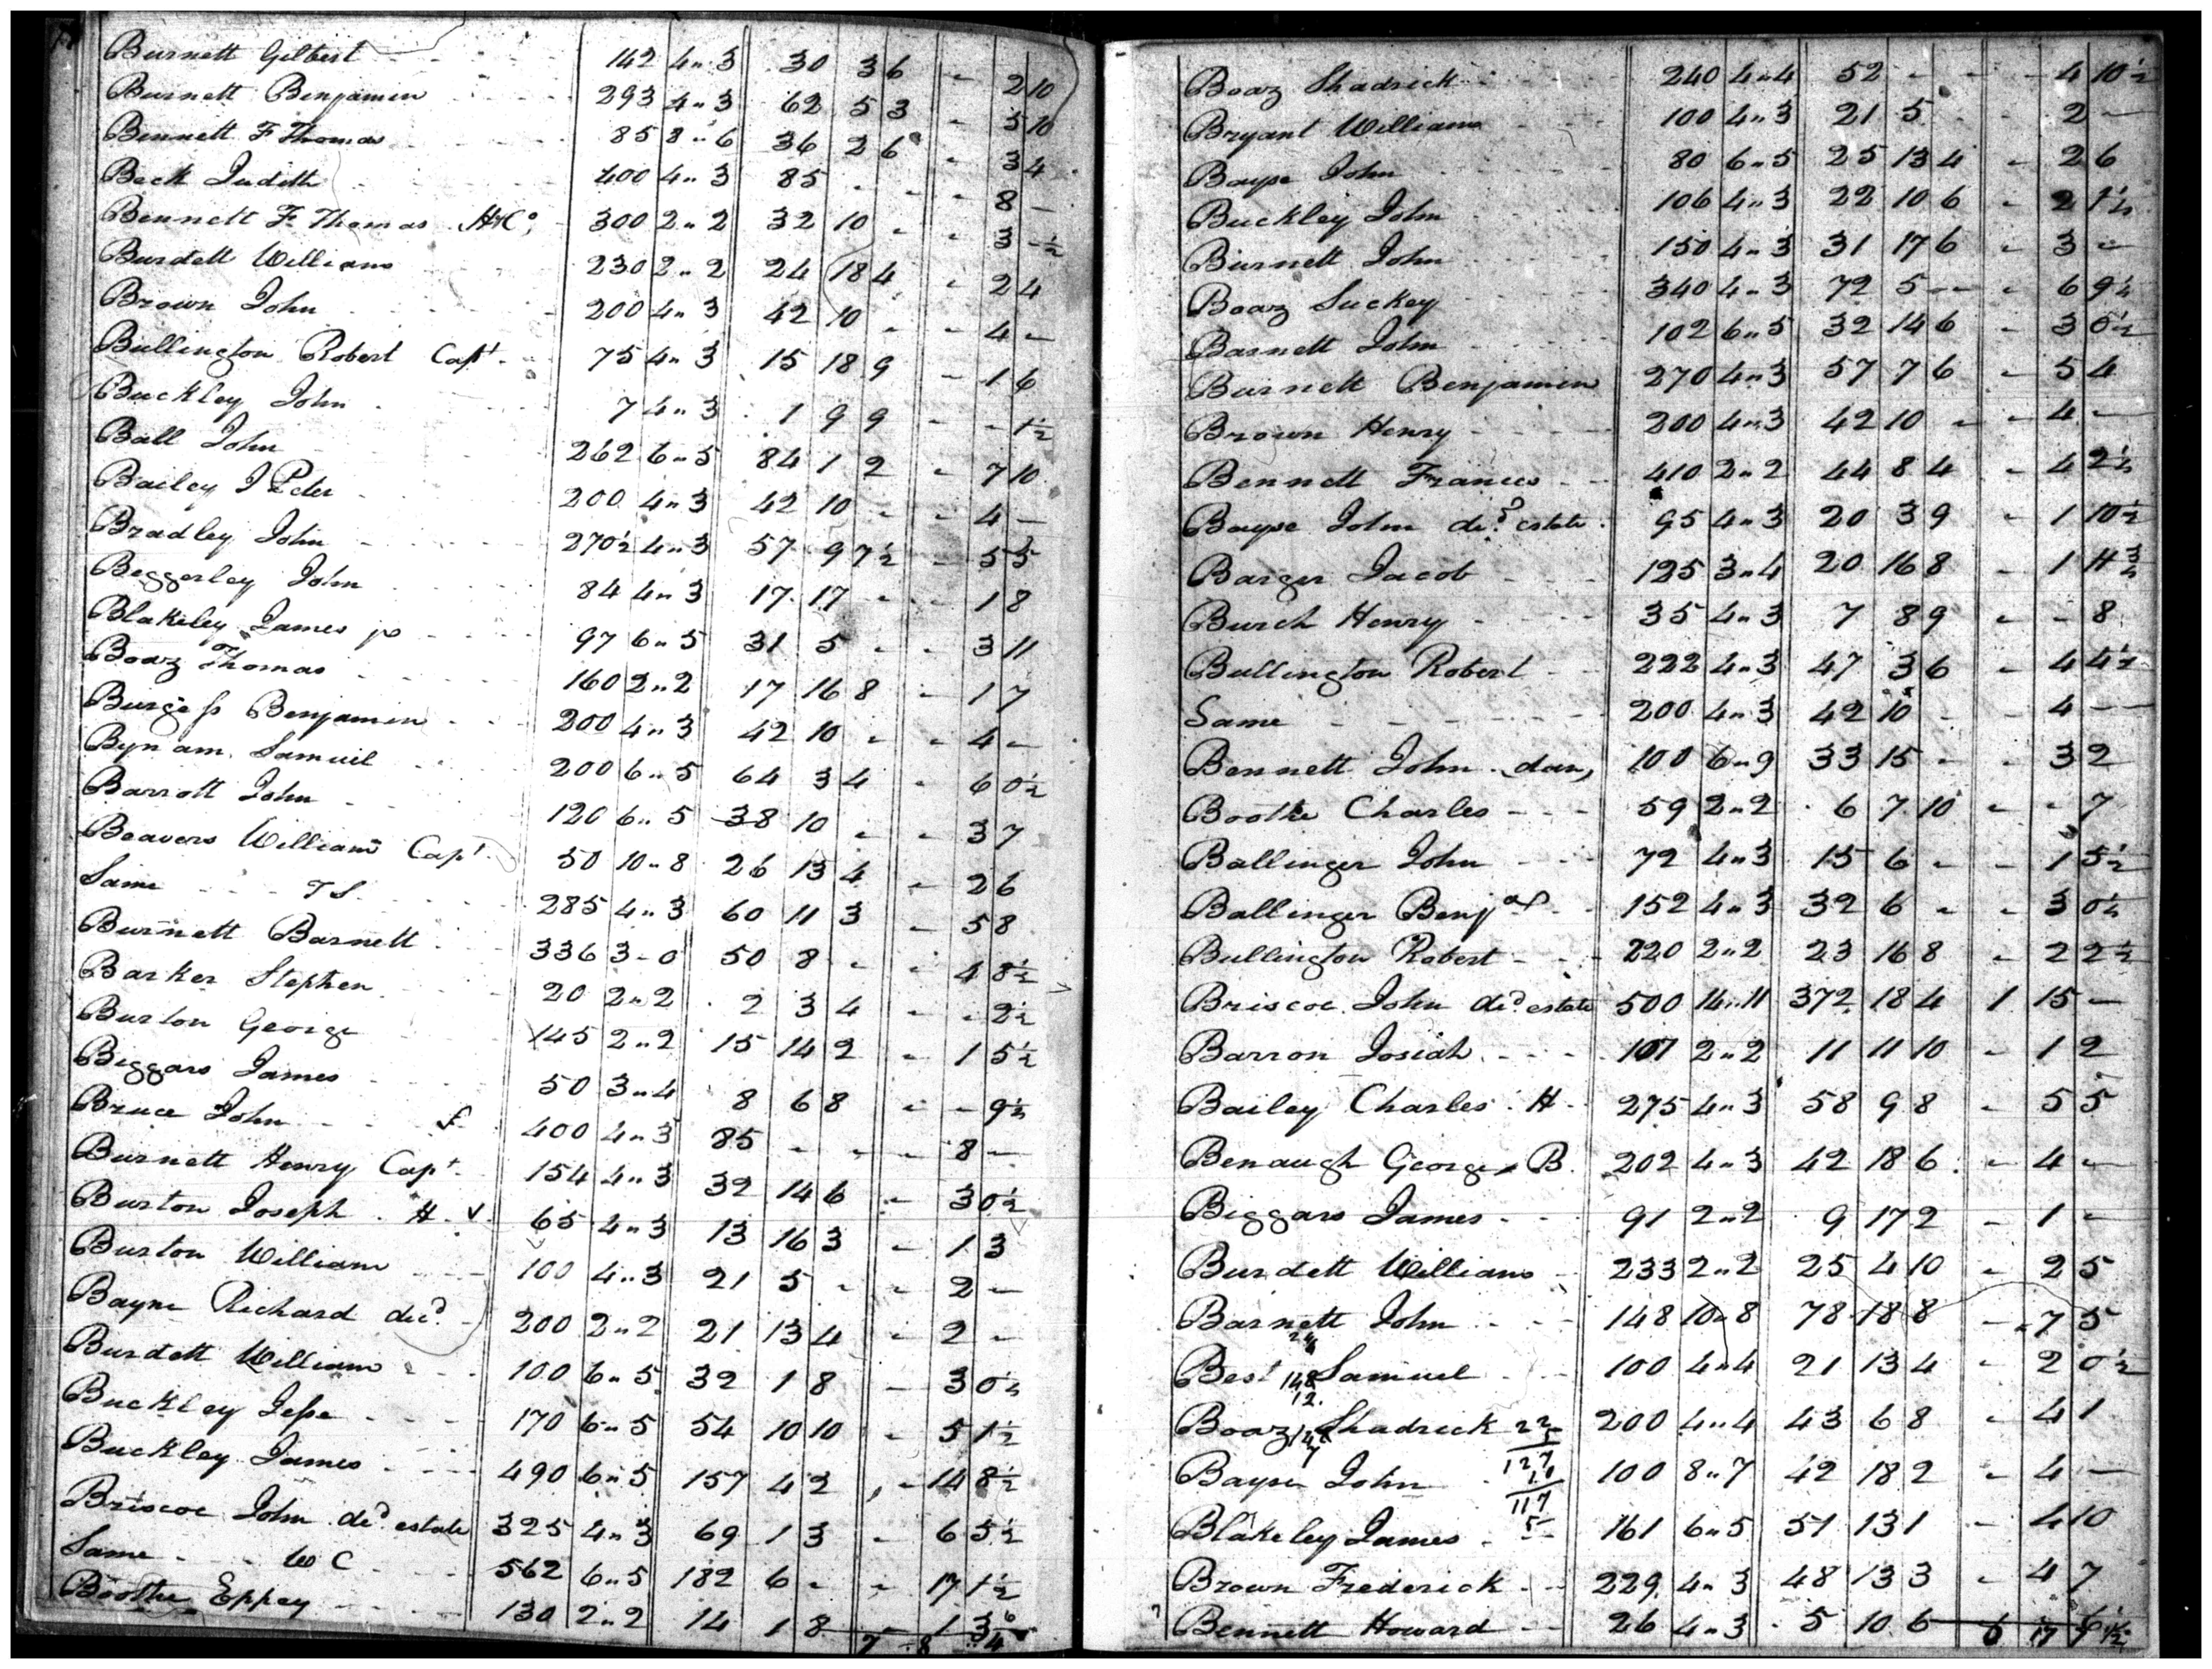 Burnett Gilbert 142 4"3 30 3 6 - 2 10
Burnett Benjamin 293 4"3 62 5 3 - 5 10
Bennett F Thomas 85 8"6 36 2 6 - 3 4
Beck Judith 400 4"3 85 - - - 8 -
Bennett F Thomas H&Co 300 2"2 32 10 - - 3 - ½
Burdett William 230 2"2 24 18 4 - 2 4
Brown John 200 4"3 42 10 - - 4 -
Bullington Robert Capt 75 4"3 15 18 9 - 1 6
Buckley John 7 4"3 1 9 9 - - 1½
Ball John 262 6"5 84 1 2 - 7 10
Bailey J Peter 200 4"3 42 10 - - 4 -
Bradley John 270½ 4"3 57 9 7½ - 5 5
Beggerley John 84 4"3 17 17 - - 1 8
Blakeley James 97 6"5 31 5 - - 3 11
Boaz Thomas 160 2"2 17 16 8 - 1 7
Burgess Benjamin 200 4"3 42 10 - - 4 -
Bynam Samuel 200 6"5 64 3 4 - 6 0½
Barrott John 120 6"5 38 10 - - 3 7
Beavers William Capt 50 10"8 26 13 4 - 2 6
Same TS 285 4"3 60 11 3 - 5 8
Burnett Barnett 336 3-0 50 8 - - 4 8½
Barker Stephen 20 2"2 2 3 4 - - 2½
Burton George 145 2"2 15 14 2 - 1 5½
Biggars James 50 3"4 8 6 8 - - 9½
Bruce John 400 4"3 85 - - - 8 -
Burnett Henry Capt 154 4"3 32 14 6 - 3 0½
Burton Joseph H 65 4"3 13 16 3 - 1 3
Burton William 100 4"3 21 5 - - 2 -
Bayne Richard decd 200 2"2 21 13 4 - 2 -
Burdett William 100 6"5 32 1 8 - 3 0½
Buckley Jesse 170 6"5 54 10 10 - 5 1½
Buckley James 490 6"5 157 4 2 - 14 8½
Briscoe John decd estate 325 4"3 69 1 3 - 6 5½
Same WC 562 6"5 182 6 - - 17 1½
Boothe Eppey 130 2"2 14 1 8 - 1 3
7 8 4
Boaz Shadrick 240 4"4 52 - - - 4 10½
Bryant William 100 4"3 21 5 - - 2 -
Bayse John 80 6"5 25 13 4 - 2 6
Buckley John 106 4"3 22 10 6 - 2 1½
Burnett John 150 4"3 31 17 6 - 3 -
Boaz Suckey 340 4"3 72 5 - - 6 9½
Barnett John 102 6"5 32 14 6 - 3 0½
Burnett Benjamin 270 4"3 57 7 6 - 5 4
Brown Henry 200 4"3 42 10 - - 4 -
Bennett Frances 410 2"2 44 8 4 - 4 2½
Bayse John decd estate 95 4"3 20 3 9 - 1 10½
Barger Jacob 125 3"4 20 16 8 - 1
Burch Henry 35 4"3 7 8 9 - - 8
Bullington Robert 222 4"3 47 3 6 - 4 4½
Same 200 4"3 42 10 - - 4 -
Bennett John 100 6"9 33 15 - - 3 2
Boothe Charles 59 2"2 6 7 10 - - 7
Ballinger John 72 4"3 15 6 - - 1 5½
Ballinger Benj 152 4"3 32 6 - - 3 0½
Bullington Robert 220 2"2 23 16 8 - 2 2½
Briscoe John decd estate 500 14"11 372 18 4 1 15 -
Barron Josiah 107 2"2 11 11 10 - 1 2
Bailey Charles H 275 4"3 58 9 8 - 5 5
Benaugh George B. 202 4"3 42 18 6 - 4 -
Biggars James 91 2"2 9 17 2 - 1 -
Burdett William 233 2"2 25 4 10 - 2 5
Barnett John 148 10"8 78 18 8 - 7 5
Best Samuel 100 4"4 21 13 4 - 2 0½
Boaz Shadrick 200 4"4 43 6 8 - 4 1
Bayse John 100 8"7 42 18 2 - 4 -
Blakeley James 161 6"5 51 13 1 - 4 10
Brown Frederick 229 4"3 48 13 3 - 4 7
Bennett Howard 26 4"3 5 10 6
6 17